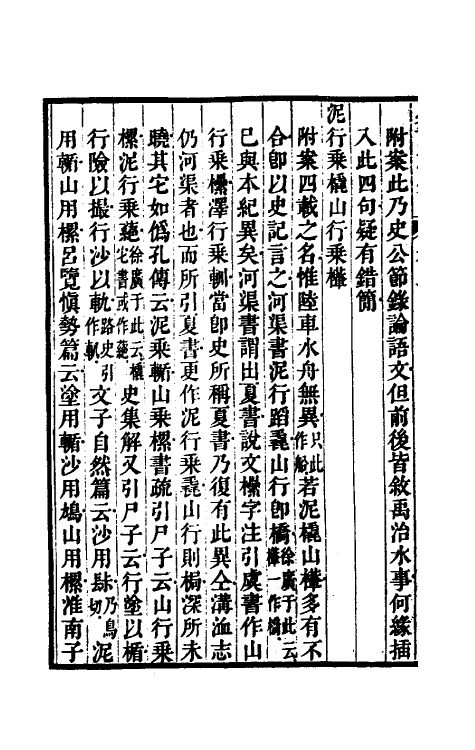 附案此乃史公節錄論語文但前後皆敘禹治水事何緣插
入此四句疑有錯簡
泥行乘橇山行乘檋
附案四載之名惟陸車水舟無異只此作船若泥橇山檋多有不
合卽以史記言之河渠書泥行蹈毳山行卽橋徐廣于此云檋一作橋
已與本紀異矣河渠書謂出夏書說文欙字注引虞書作山
行乘欙澤行乘輴當卽史所稱夏書乃復有此異仝溝洫志
仍河渠者也而所引夏書更作泥行乘毳山行則梮深所未
曉其它如僞孔傳云泥乘輴山乘樏書疏引尸子云山行乘
樏泥行乘蕝徐廣于此云橇它書或作蕝史集解又引尸子云行塗以楯
行險以撮行沙以軌路史引作軏文子自然篇云沙用𦐂乃鳥切泥
用輴山用樏呂覽愼勢篇云塗用輴沙用鳩山用樏淮南子